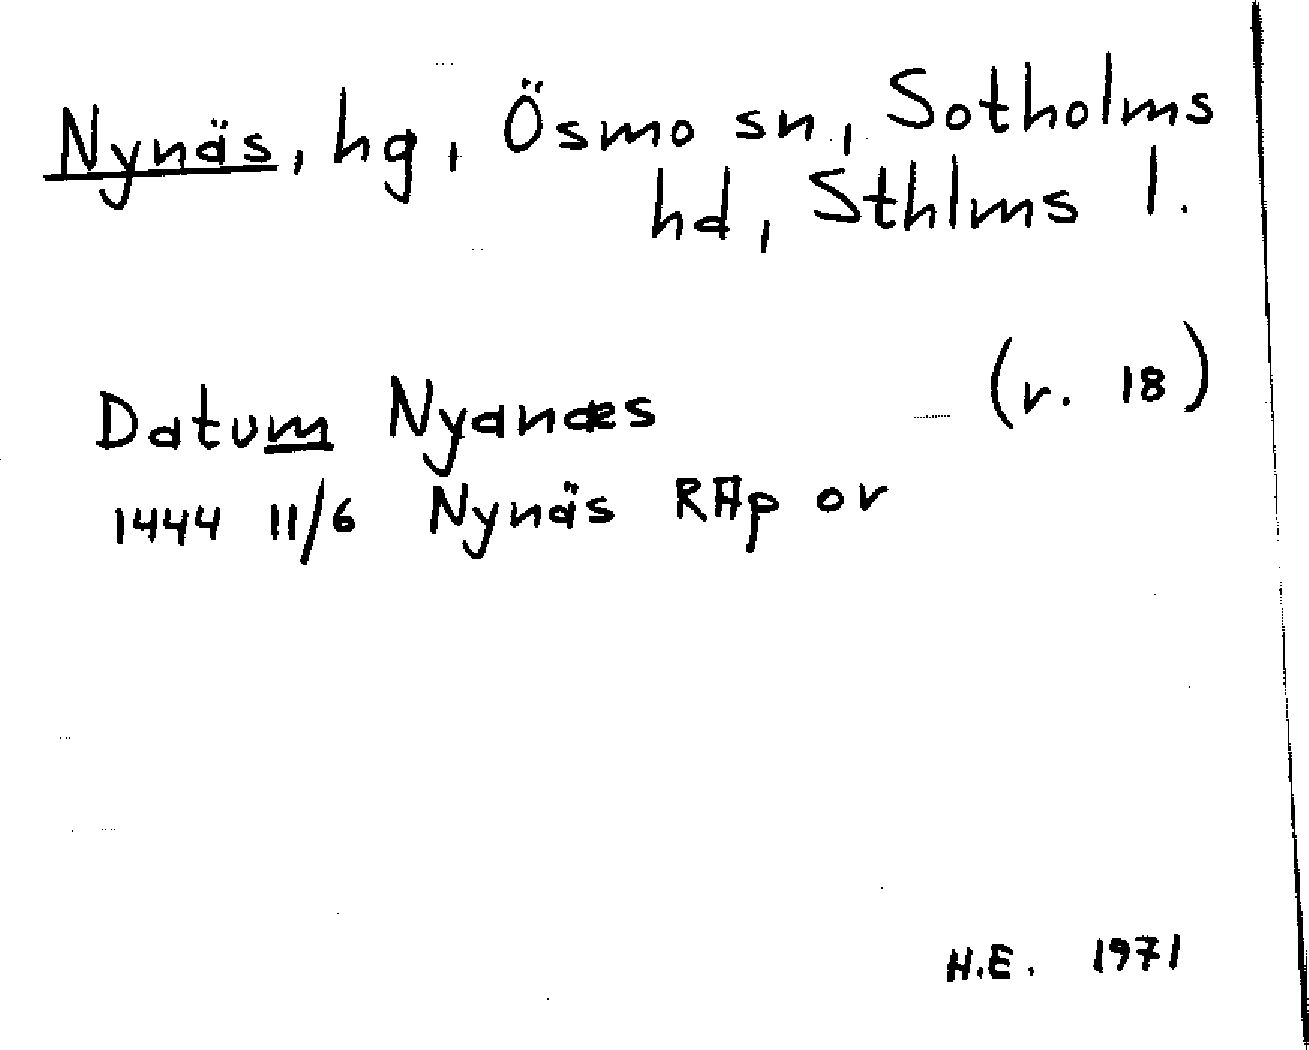 Nynäs, hg, Ösmo sn, Sotholms
hd, Sthlms l.
(r. 18)
Datum Nyanæs
1444 11/6 Nynäs RAp or
H.E. 1971